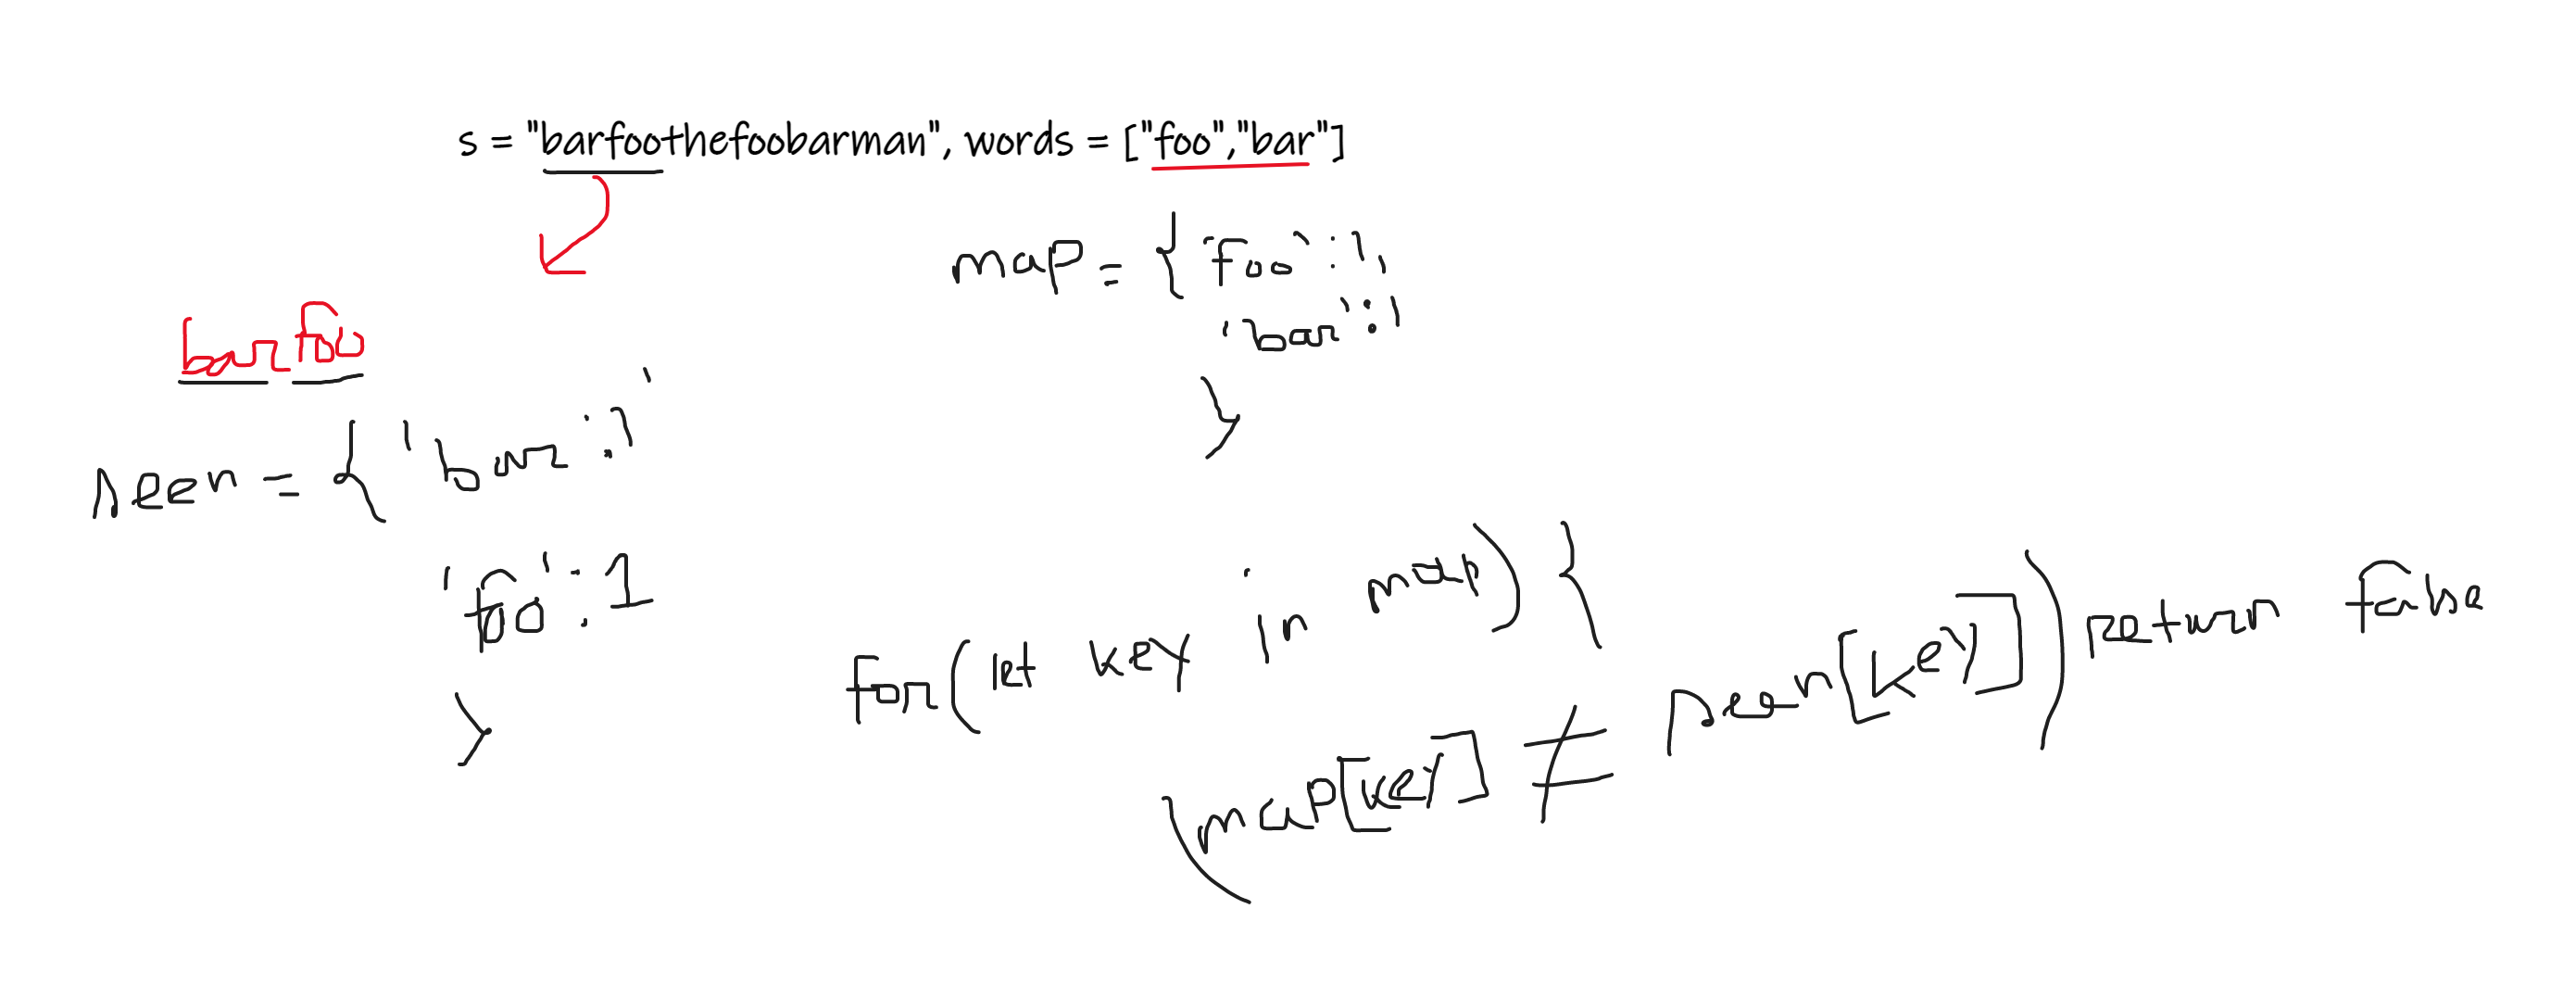 s = "barfoothefoobarman", words = ["foo","bar"]
map = { 'foo' : 1,
'bar' : 1
}
barfoo
seen = { 'bar' : 1,
'foo' : 1
}
for(let key in map) {
(map[key] ≠ seen[key]) return false